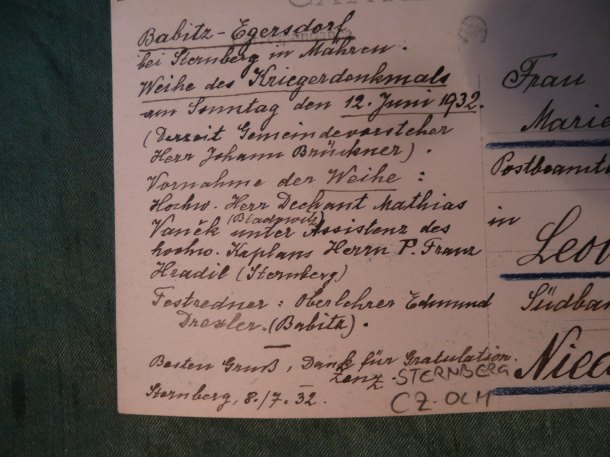 Babitz-Egersdorf
bei Sternberg in Mähren.
Weihe des Kriegerdenkmals
am Sonntag den 12. Juni 1932.
(Derzeit Gemeindevorsteher
Herr Johann Brückner).
Vornahme der Weihe:
Hochw. Herr Dechant Mathias
(Bladowitz)
Vaněk unter Assistenz des
hochw. Kaplans Herrn P. Franz
Hradil (Sternberg)
Festredner: Oberlehrer Edmund
Drexler. (Babitz).
Besten Gruß, Dank für Gratulation.
Lenz
Sternberg, 8./7. 32.
STERNBERG
CZ-OLM
Frau
Marie
Postbeamt
in
Leo
Südba
Nied